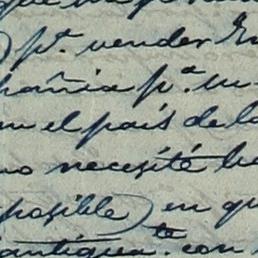 ) p.r vender En
hañia p.a un
en el país de lo
no necesité ha
posible) en qu
antigua te con